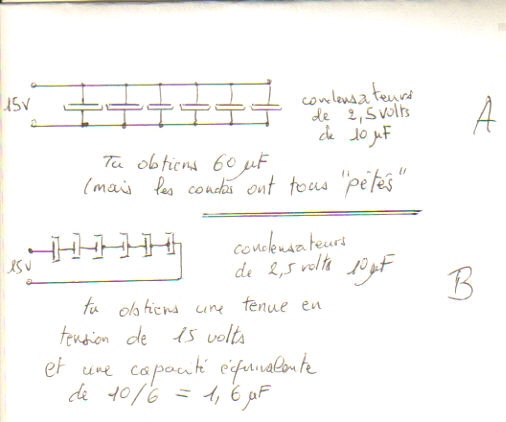 15V
condensateurs
de 2,5 volts
de 10 µF
A
Tu obtiens 60 µF
(mais les condos ont tous "pétés"
15V
condensateurs
de 2,5 volts 10 µF
B
tu obtiens une tenue en
tension de 15 volts
et une capacité équivalente
de 10/6 = 1,6 µF